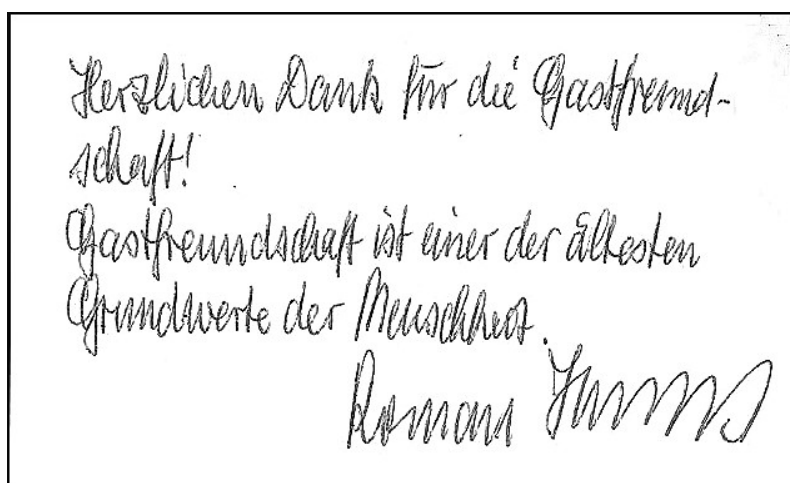 Herzlichen Dank für die Gastfreund-
schaft!
Gastfreundschaft ist einer der ältesten
Grundwerte der Menschheit.
Roman